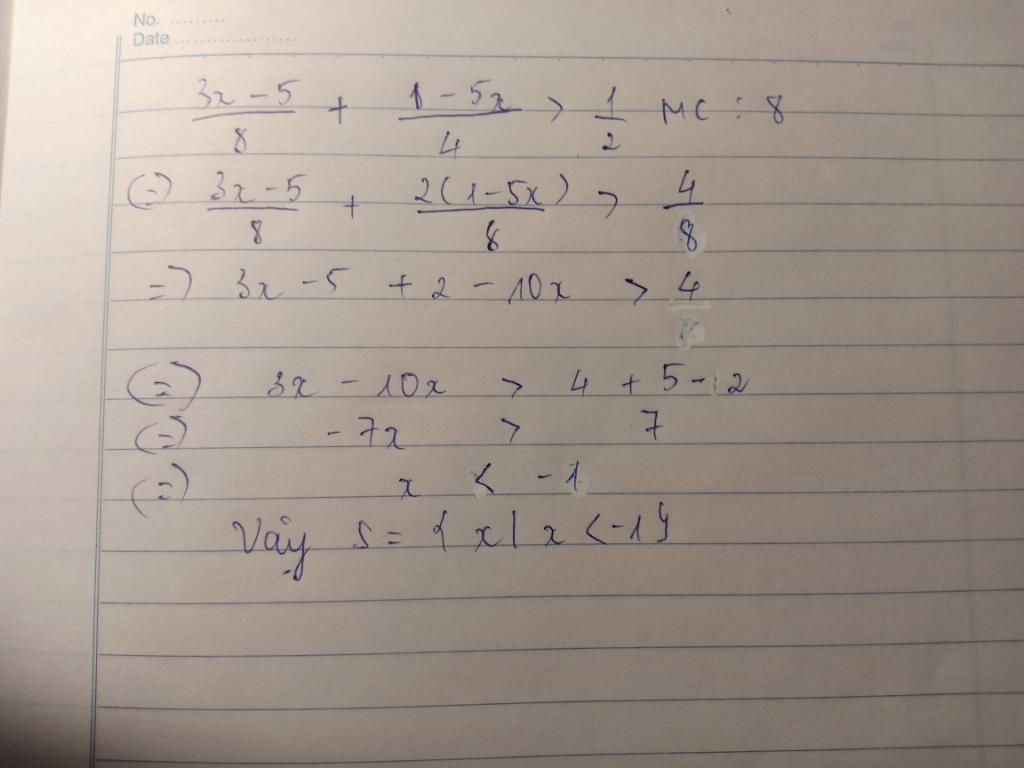 No. .........
Date ...................
3x - 5 / 8 + 1 - 5x / 4 > 1 / 2 MC : 8
(=) 3x - 5 / 8 + 2(1 - 5x) / 8 > 4 / 8
=) 3x - 5 + 2 - 10x > 4
(=) 3x - 10x > 4 + 5 - 2
(=) - 7x > 7
(=) x < - 1
Vậy S = { x | x < -1 }